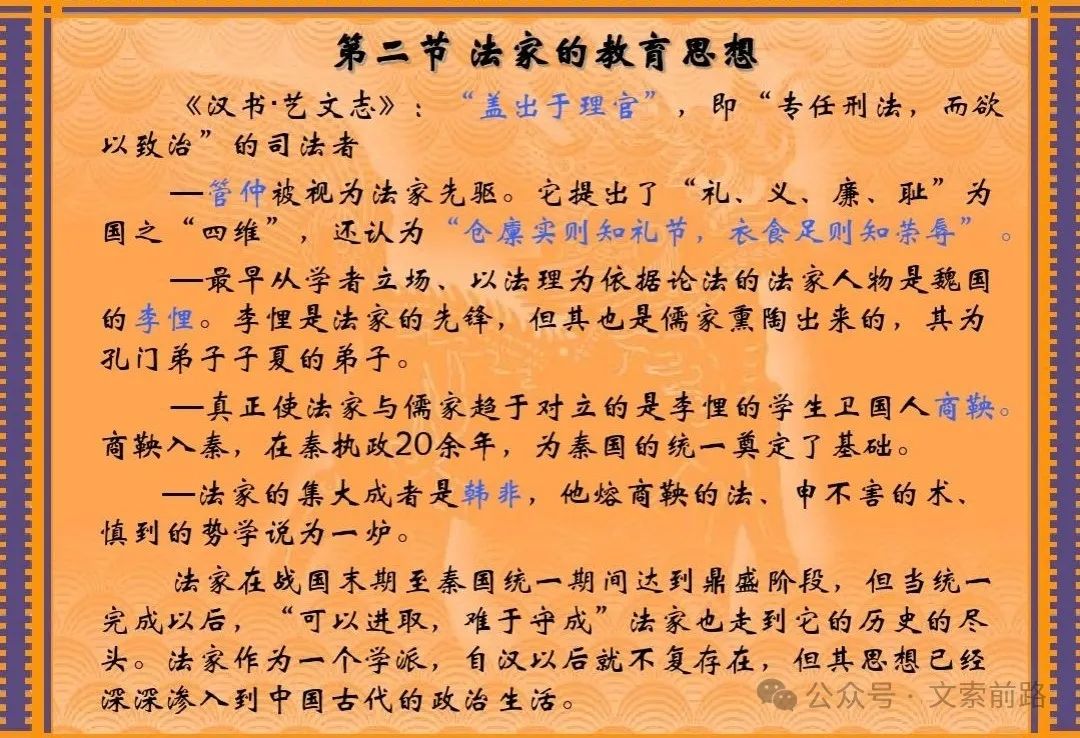 第二节 法家的教育思想
《汉书·艺文志》：“盖出于理官”，即“专任刑法，而欲
以致治”的司法者
—管仲被视为法家先驱。它提出了“礼、义、廉、耻”为
国之“四维”，还认为“仓廪实则知礼节，衣食足则知荣辱”。
—最早从学者立场、以法理为依据论法的法家人物是魏国
的李悝。李悝是法家的先锋，但其也是儒家熏陶出来的，其为
孔门弟子子夏的弟子。
—真正使法家与儒家趋于对立的是李悝的学生卫国人商鞅。
商鞅入秦，在秦执政20余年，为秦国的统一奠定了基础。
—法家的集大成者是韩非，他熔商鞅的法、申不害的术、
慎到的势学说为一炉。
法家在战国末期至秦国统一期间达到鼎盛阶段，但当统一
完成以后，“可以进取，难于守成”法家也走到它的历史的尽
头。法家作为一个学派，自汉以后就不复存在，但其思想已经
深深渗入到中国古代的政治生活。
公众号·文索前路